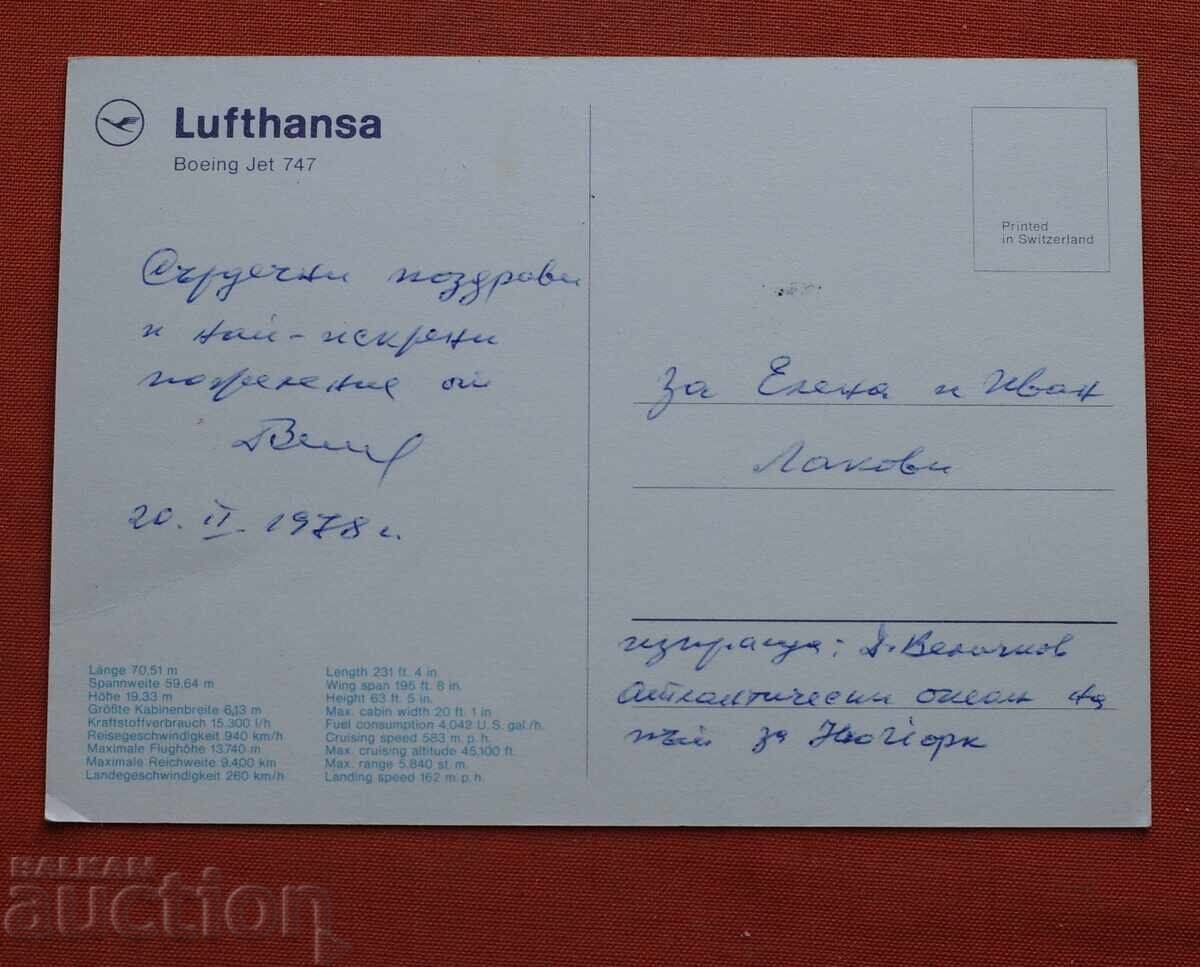 Lufthansa
Boeing Jet 747
Printed
in Switzerland
Сърдечни поздрави
и най-искрени
от
20. II. 1978 г.
За Елена и Иван
Лакови
изпраща: Д. Величков
Атлантически океан на
път за Ню Йорк
Länge 70,51 m
Spannweite 59,64 m
Höhe 19,33 m
Größte Kabinenbreite 6,13 m
Kraftstoffverbrauch 15.300 l/h
Reisegeschwindigkeit 940 km/h
Maximale Flughöhe 13.740 m
Maximale Reichweite 9.400 km
Landegeschwindigkeit 260 km/h
Length 231 ft. 4 in
Wing span 195 ft. 8 in.
Height 63 ft. 5 in.
Max. cabin width 20 ft. 1 in
Fuel consumption 4.042 U.S. gal./h.
Cruising speed 583 m. p. h.
Max. cruising altitude 45,100 ft.
Max. range 5.840 st. m.
Landing speed 162 m. p. h.
BALKAN
auction